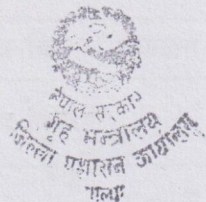 नेपाल सरकार
गृह मन्त्रालय
जिल्ला प्रशासन कार्यालय
पाल्पा